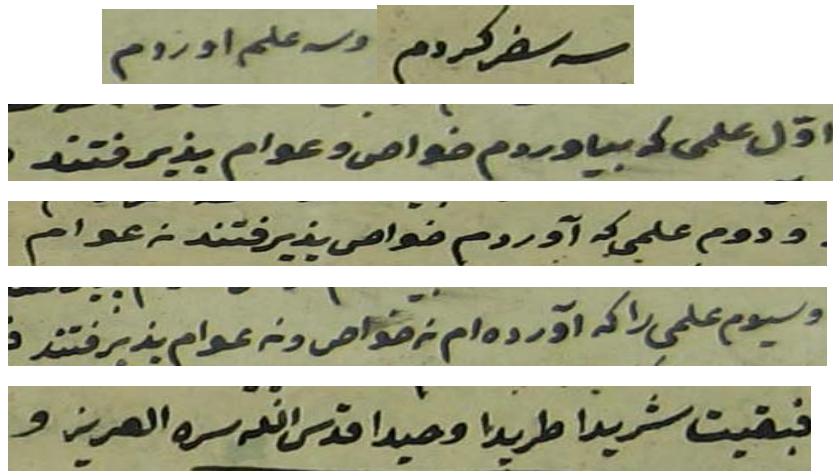 سه سفر کردم وسه علم اوردم
اوّل علمی که بیاوردم خواص و عوام پذیرفتند
و دوم علمی که آوردم خواص پذیرفتند نه عوام
وسیوم علمی را که آورده ام نه خواص ونه عوام پذیرفتند
فبقیت شریدا طریدا وحیدا قدس الله سره العزیز و